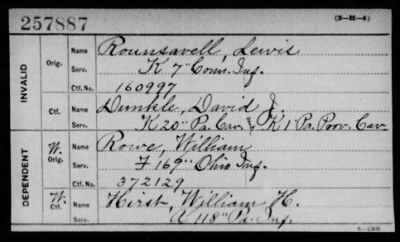 257887
(3-M-4)
INVALID
Orig.
Name Rounsavell, Lewis
Serv. K 7" Conn. Inf.
Ctf. No. 160997
Ctf.
Name Dunkle, David J.
Serv. K 20" Pa. Cav. & K 1 Pa. Prov. Cav.
DEPENDENT
W. Orig.
Name Rowe, William
Serv. F 169" Ohio Inf.
Ctf. No. 372129
W. Ctf.
Name Hirst, William H.
Serv. 118" Pa. Inf.